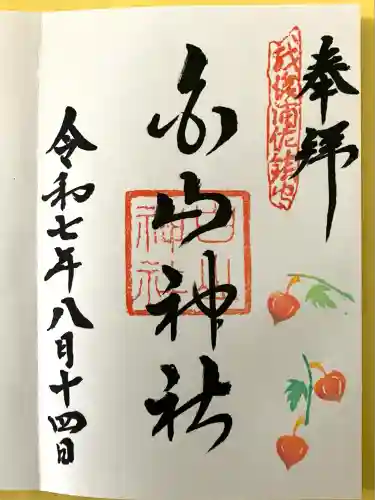 奉拝
越後浦佐鎮守
白山神社
白山
神社
令和七年八月十四日